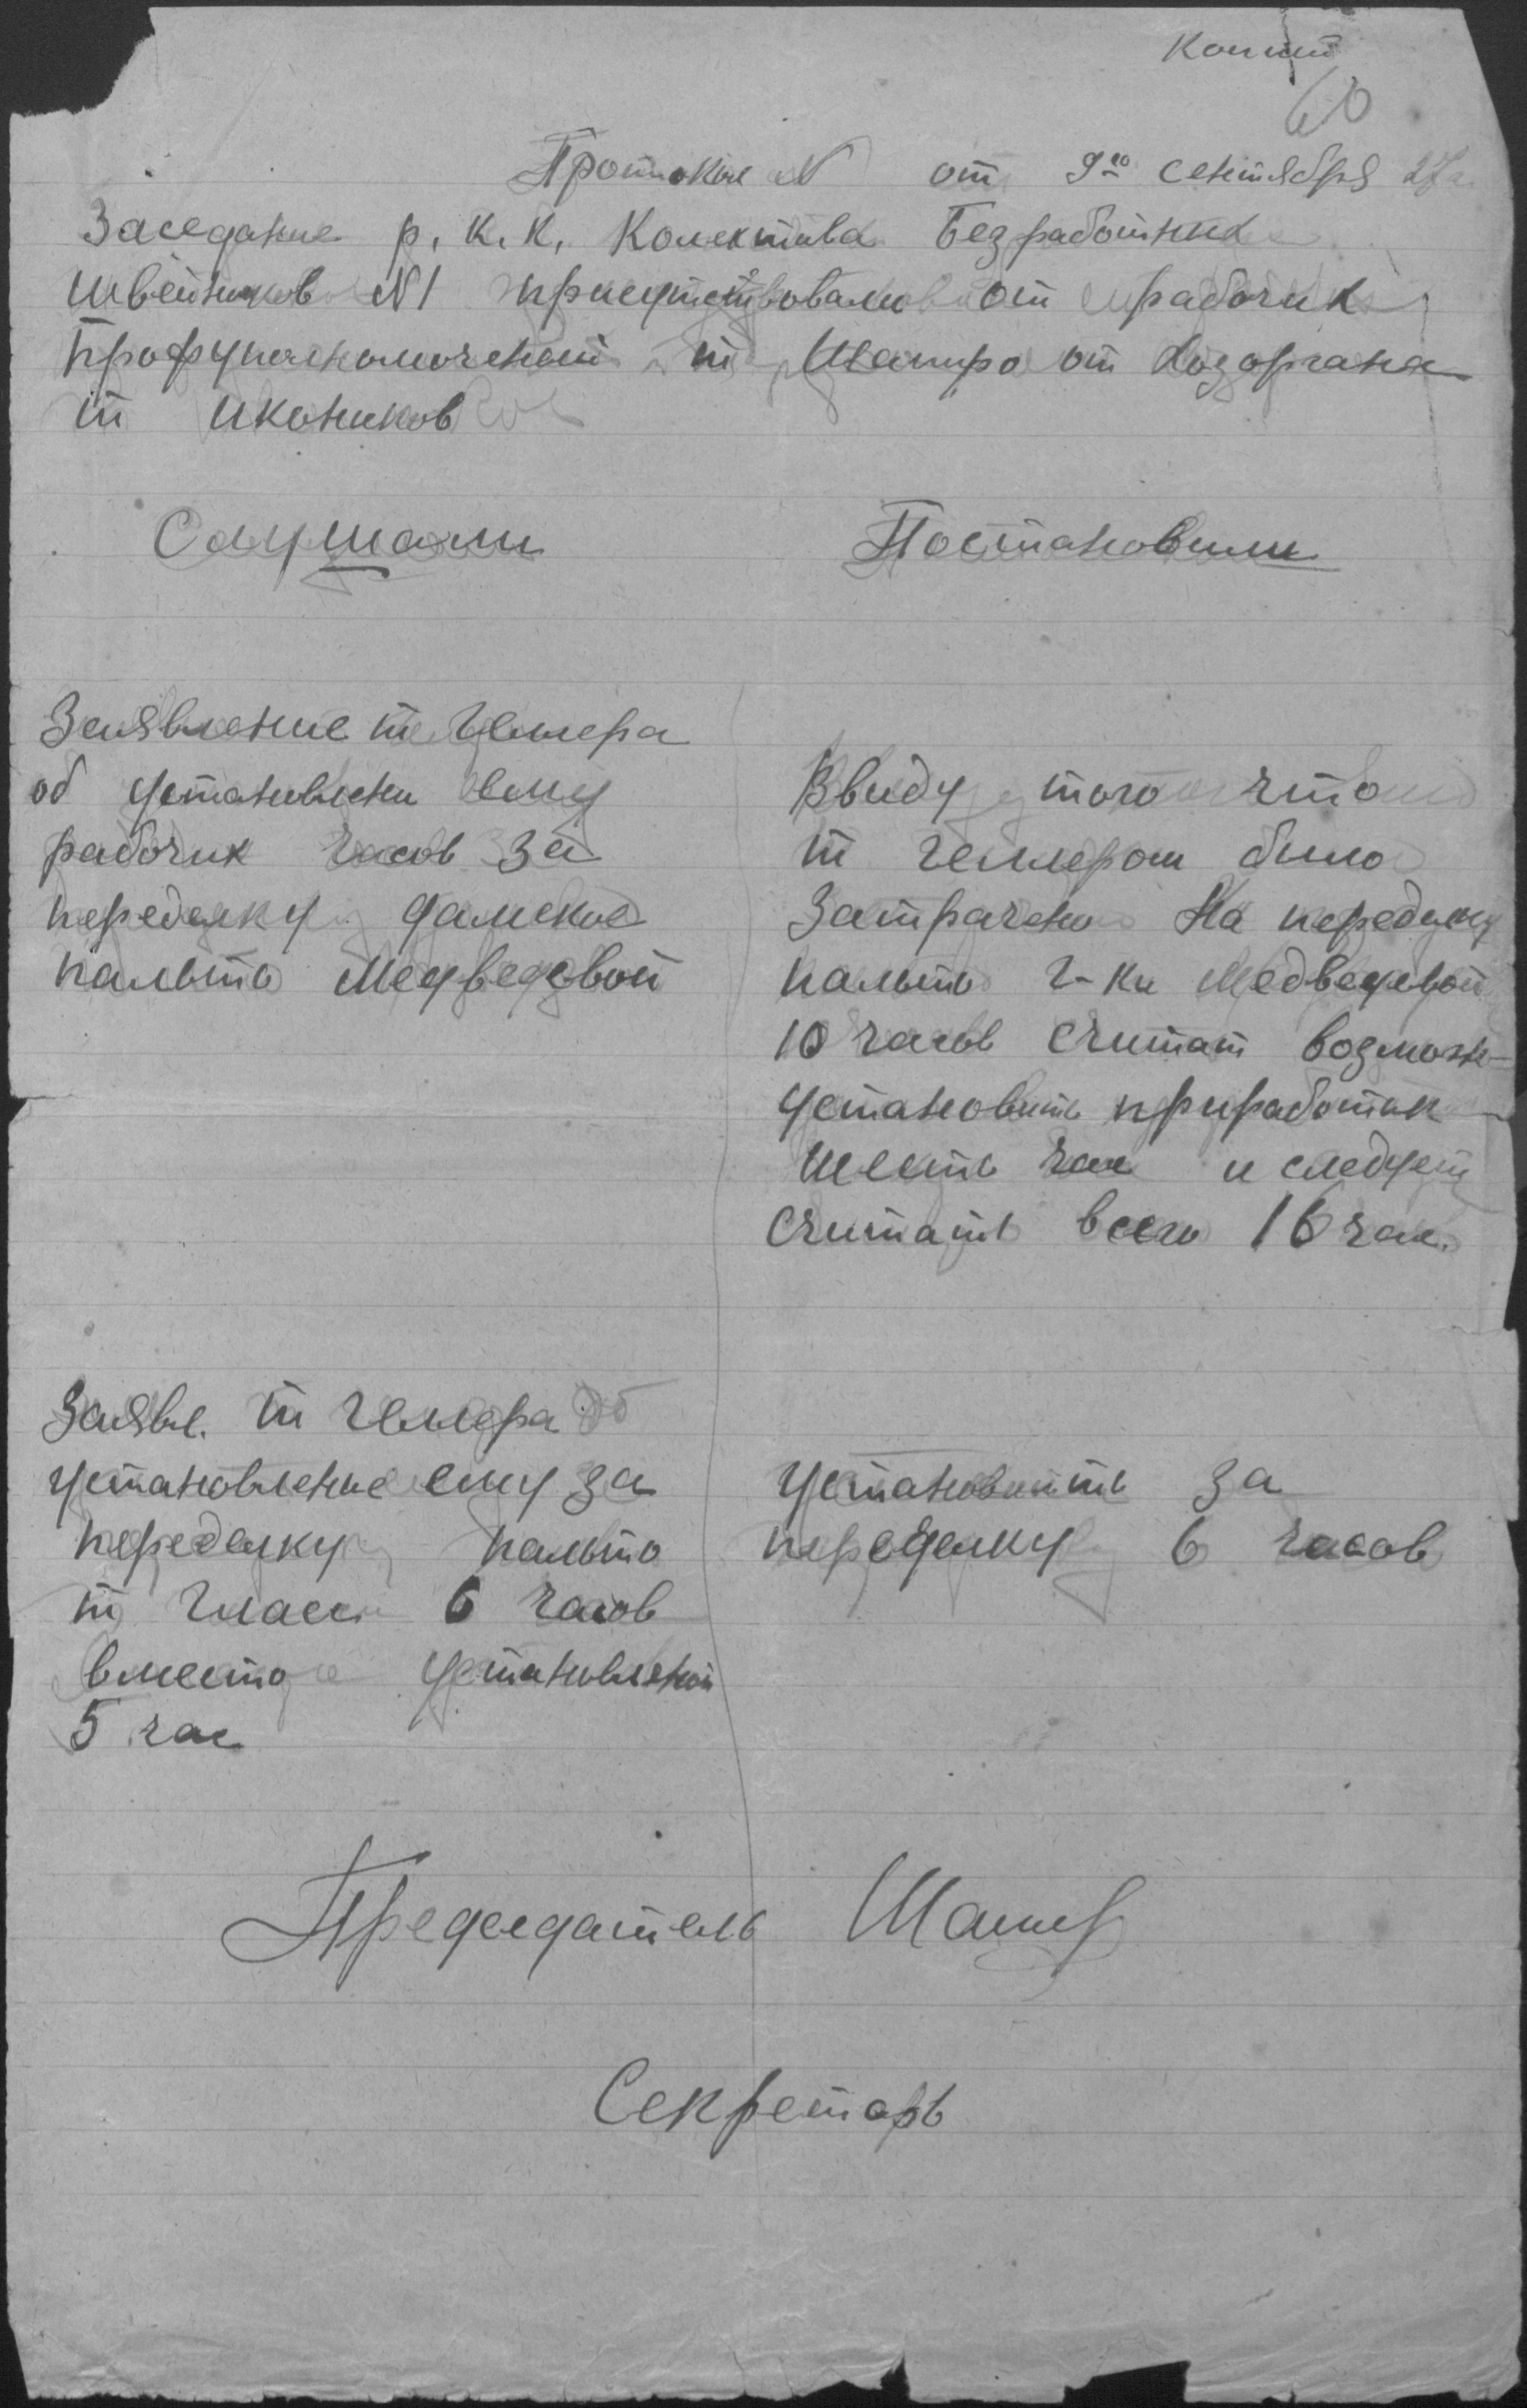 Копия
60
Протокол № от 9го сентября 27г.
Заседание р. к. к. Колектива Безработных
швейников №1 присутствовали от рабочих
профуполномоченый т Шапиро от Хозоргана
т Иконников
Слушали
Постановили
Заявление т Геллера
об установлени ему
рабочих часов за
переделку дамское
пальто Медведевой
Ввиду того что
т Геллером было
Затрачено На переделку
пальто г-ки Медведевой
10 часов считат возможн
установить приработок
шесть час и следует
считать всего 16 час.
Заявл. т Геллера об
установление ему за
переделку пальто
т Гласс 6 часов
вместо установленой
5 час
установить за
переделку 6 часов
Председатель Шапир
Секретарь